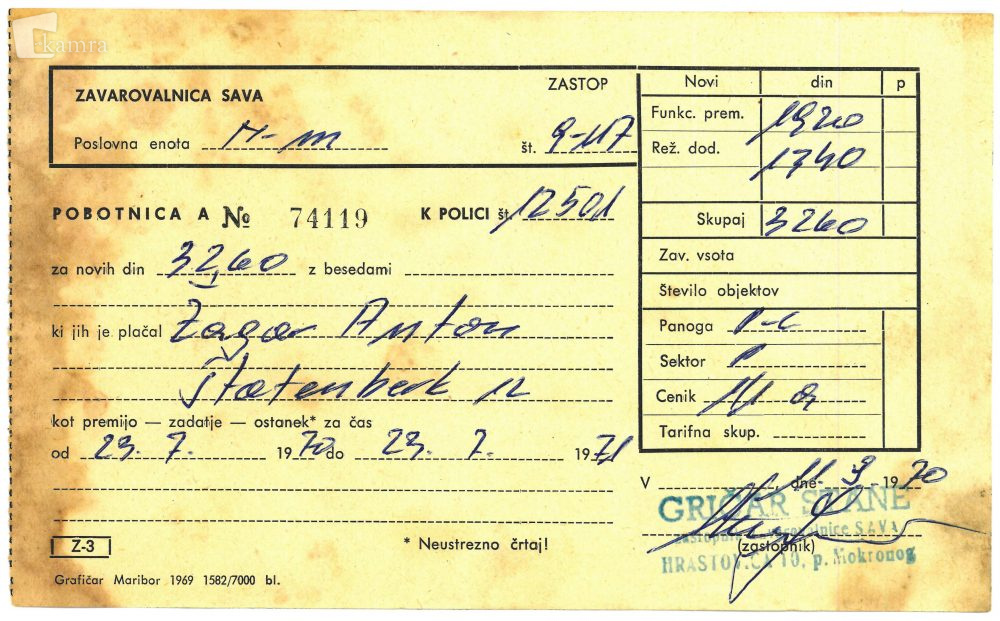 kamra
ZAVAROVALNICA SAVA
ZASTOP
Poslovna enota
št. 9-117
Novi din p
Funkc. prem. 1920
Rež. dod. 1340
Skupaj 3260
Zav. vsota
Število objektov
Panoga
Sektor
Cenik
Tarifna skup.
POBOTNICA A № 74119 K POLICI št. 12501
za novih din 32,60 z besedami
ki jih je plačal Žagar Anton
Štatenberk 12
kot premijo — zadatje — ostanek* za čas
od 29. 7. 1970 do 29. 7. 1971
V , dne 9 1970
GRIČAR STANE
zavarovalnice SAVA
(zastopnik)
HRASTOVICA 10, p. Mokronog
Z-3
* Neustrezno črtaj!
Grafičar Maribor 1969 1582/7000 bl.